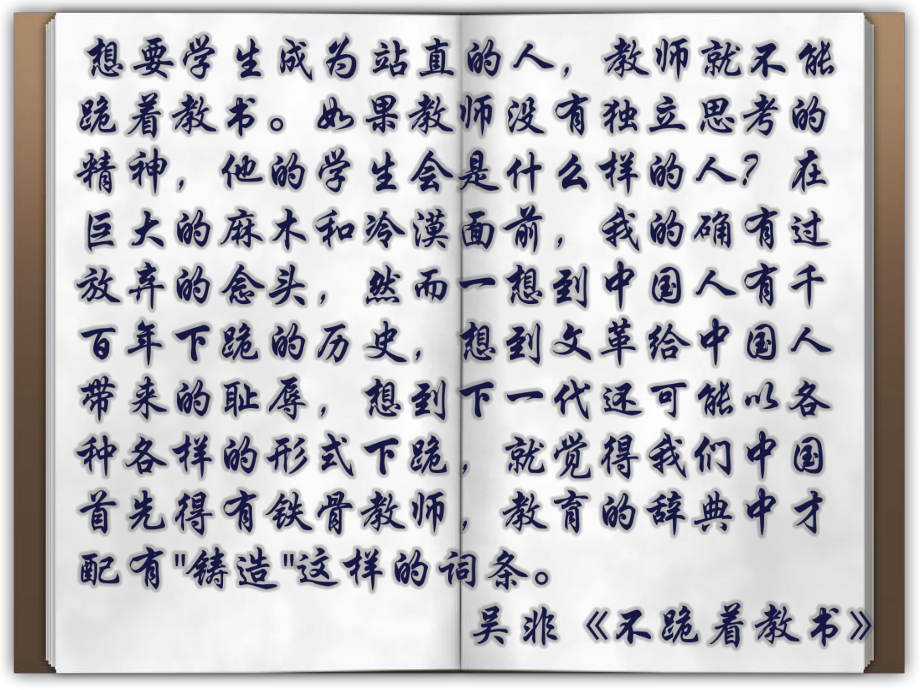 想要学生成为站直的人，教师就不能
跪着教书。如果教师没有独立思考的
精神，他的学生会是什么样的人？在
巨大的麻木和冷漠面前，我的确有过
放弃的念头，然而一想到中国人有千
百年下跪的历史，想到文革给中国人
带来的耻辱，想到下一代还可能以各
种各样的形式下跪，就觉得我们中国
首先得有铁骨教师，教育的辞典中才
配有"铸造"这样的词条。
吴非《不跪着教书》